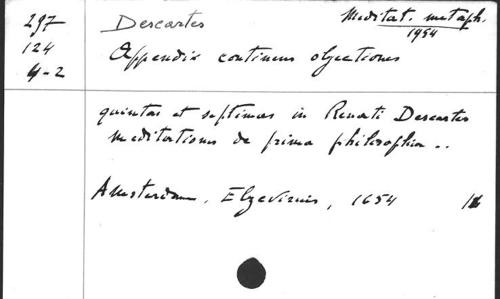 297 Descartes Meditat. metaph.
124 1954
4-2 Appendix continens objectiones
quintas et septimas in Renati Descartes
meditationes de prima philosophia ..
Amsterdam, Elzevirius, 1654